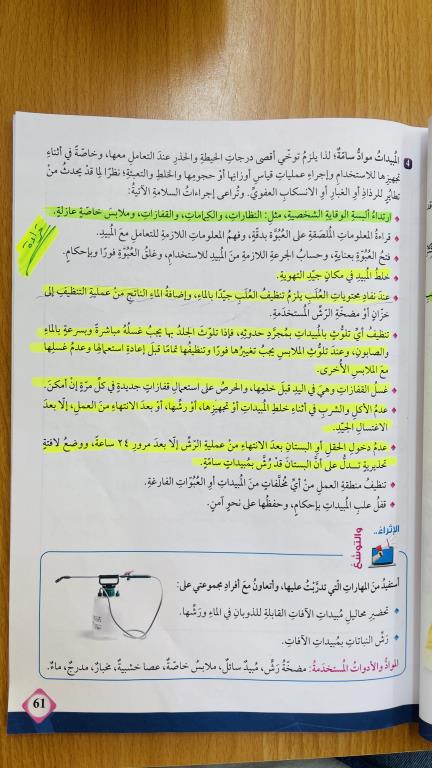 4 المُبيداتُ موادُّ سامّةٌ؛ لذا يلزمُ توخّي أقصى درجاتِ الحيطةِ والحذرِ عندَ التعاملِ معها، وخاصّةً في أثناءِ
تجهيزِها للاستخدامِ وإجراءِ عملياتِ قياسِ أوزانِها أوْ حجومِها والخلطِ والتعبئةِ؛ نظرًا لِما قدْ يحدثُ منْ
تطايُرٍ للرذاذِ أوِ الغبارِ أوِ الانسكابِ العفويِّ. وتُراعى إجراءاتُ السلامةِ الآتيةُ:
ارتداءُ ألبسةِ الوقايةِ الشخصيةِ، مثلِ: النظاراتِ، والكِماماتِ، والقفازاتِ، وملابسَ خاصّةٍ عازلةٍ.
قراءةُ المعلوماتِ المُلصَقةِ على العُبُوَّةِ بدقّةٍ، وفهمُ المعلوماتِ اللازمةِ للتعاملِ معَ المُبيدِ.
فتحُ العُبُوَّةِ بعنايةٍ، وحسابُ الجرعةِ اللازمةِ منَ المُبيدِ للاستخدامِ، وغلقُ العُبُوَّةِ فورًا وبإحكامٍ.
خلطُ المُبيدِ في مكانٍ جيّدِ التهويةِ.
عندَ نفادِ محتوياتِ العُلَبِ يلزمُ تنظيفُ العُلَبِ جيّدًا بالماءِ، وإضافةُ الماءِ الناتجِ منْ عمليةِ التنظيفِ إلى
خزّانِ أوْ مضخّةِ الرشِّ المُستخدَمةِ.
تنظيفُ أيِّ تلوُّثٍ بالمُبيداتِ بمُجرَّدِ حدوثِهِ، فإذا تلوّثَ الجلدُ بها يجبُ غسلُهُ مباشرةً وبسرعةٍ بالماءِ
والصابونِ، وعندَ تلوُّثِ الملابسِ يجبُ تغييرُها فورًا وتنظيفُها تمامًا قبلَ إعادةِ استعمالِها وعدمُ غسلِها
معَ الملابسِ الأُخرى.
غسلُ القفازاتِ وهيَ في اليدِ قبلَ خلعِها، والحرصُ على استعمالِ قفازاتٍ جديدةٍ في كلِّ مرّةٍ إنْ أمكنَ.
عدمُ الأكلِ والشربِ في أثناءِ خلطِ المُبيداتِ أوْ تجهيزِها، أوْ رشِّها، أوْ بعدَ الانتهاءِ منَ العملِ، إلّا بعدَ
الاغتسالِ الجيّدِ.
عدمُ دخولِ الحقلِ أوِ البستانِ بعدَ الانتهاءِ منْ عمليةِ الرّشِّ إلّا بعدَ مرورِ ٢٤ ساعةً، ووضعُ لافتةٍ
تحذيريةٍ تستدلُّ على أنَّ البستانَ قدْ رُشَّ بمُبيداتٍ سامّةٍ.
تنظيفُ منطقةِ العملِ منْ أيِّ مُخلَّفاتٍ منَ المُبيداتِ أوِ العُبُوّاتِ الفارغةِ.
قفلُ علبِ المُبيداتِ بإحكامٍ، وحفظُها على نحوٍ آمنٍ.
الإثراءُ..
والتوسُّعُ
أستفيدُ منَ المهاراتِ الّتي تدرَّبْتُ عليها، وأتعاونُ معَ أفرادِ مجموعتي على:
تحضيرِ محاليلِ مُبيداتِ الآفاتِ القابلةِ للذوبانِ في الماءِ ورَشِّها.
رَشِّ النباتاتِ بمُبيداتِ الآفاتِ.
الموادُّ والأدواتُ المُستخدَمةُ: مضخّةُ رَشٍّ، مُبيدٌ سائلٌ، ملابسُ خاصّةٌ، عصا خشبيةٌ، مخبارٌ، مدرجٌ، ماءٌ.
61